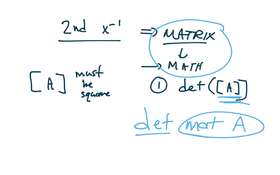 2nd x⁻¹ ⇒ MATRIX
↓
→ MATH
[A] must be square
① det([A])
det mat A